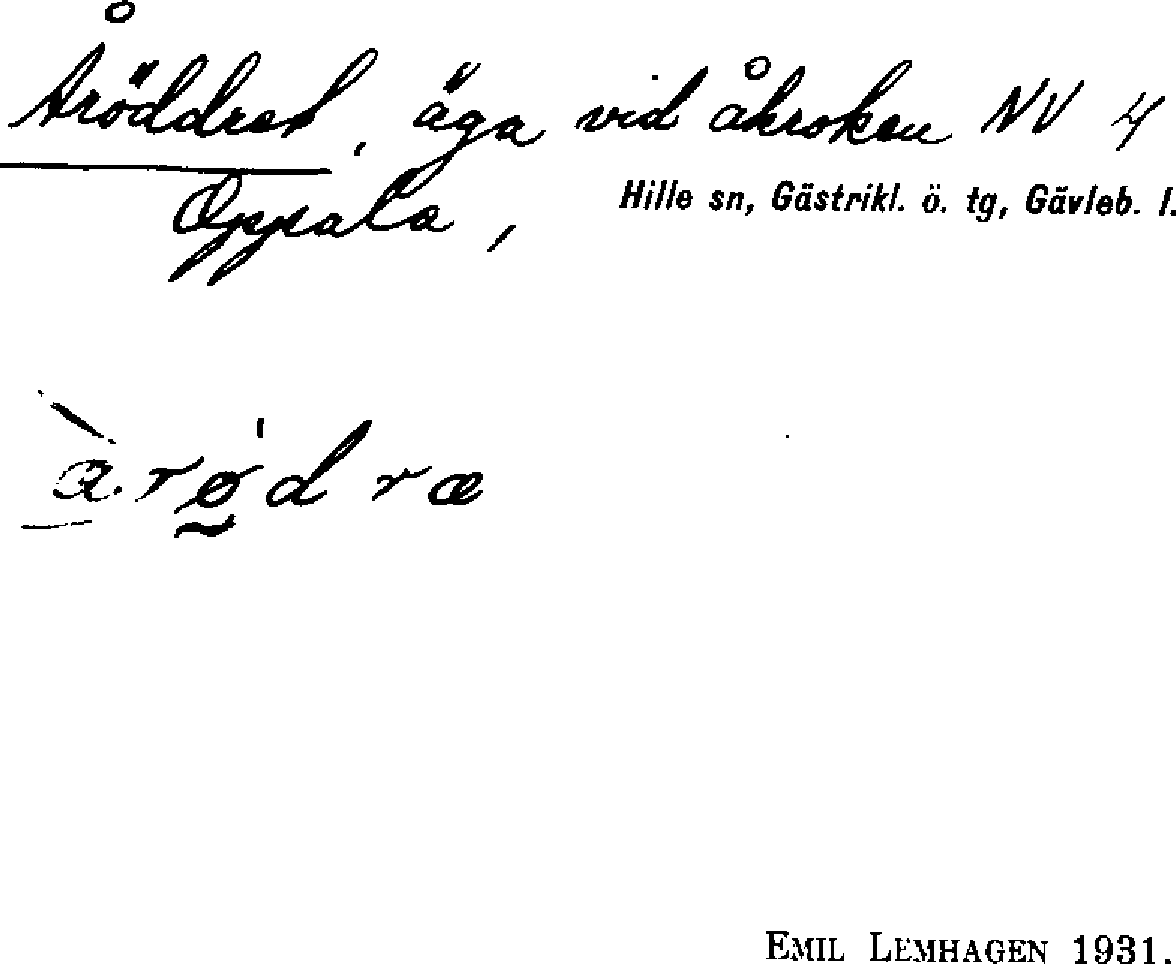 Åröddret, äga vid åkroken NV 4
Oppala, Hille sn, Gästrikl. ö. tg, Gävleb. l.
a. rød ræ
EMIL LEMHAGEN 1931.